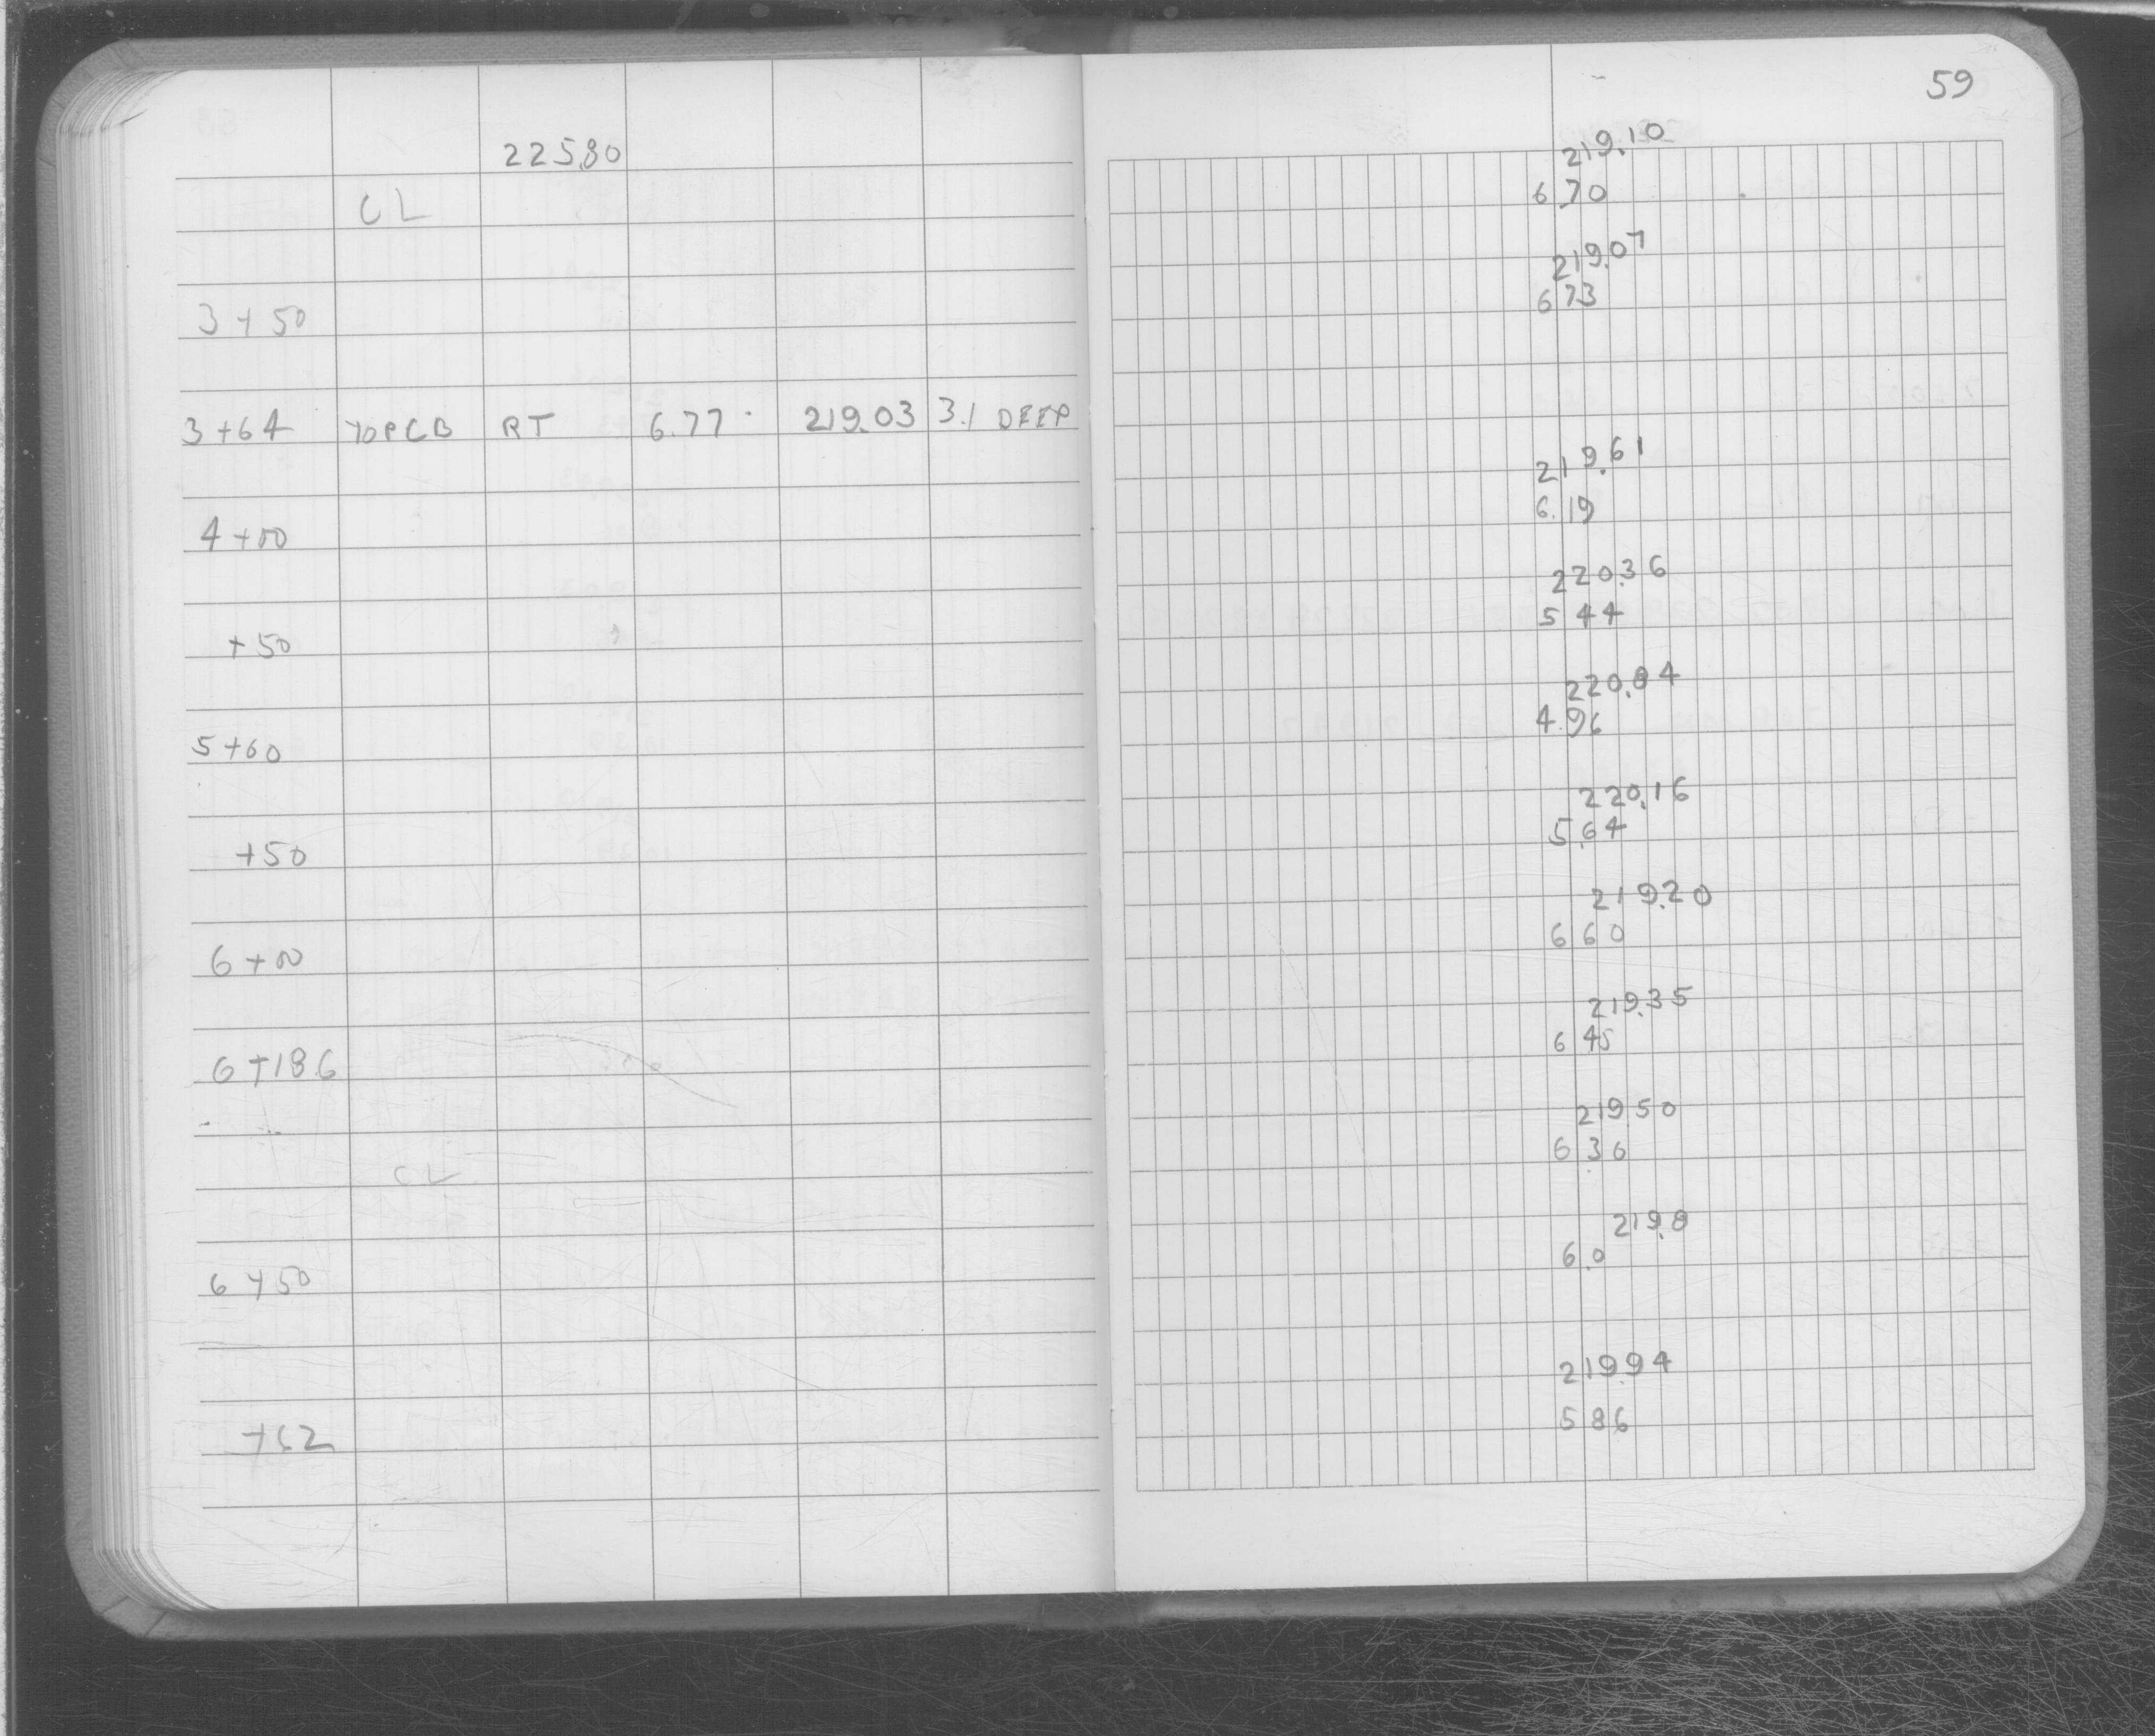 59
225.80
219.10
CL
6.70
219.07
3+50
6.73
3+64 TOP CB RT 6.77 219.03 3.1 DEEP
219.61
6.19
4+00
220.36
5.44
+50
220.84
4.96
5+00
220.16
5.64
+50
219.20
6.60
6+00
219.35
6.45
6+18.6
219.50
6.36
CL
219.8
6.0
6+50
219.94
5.86
+62